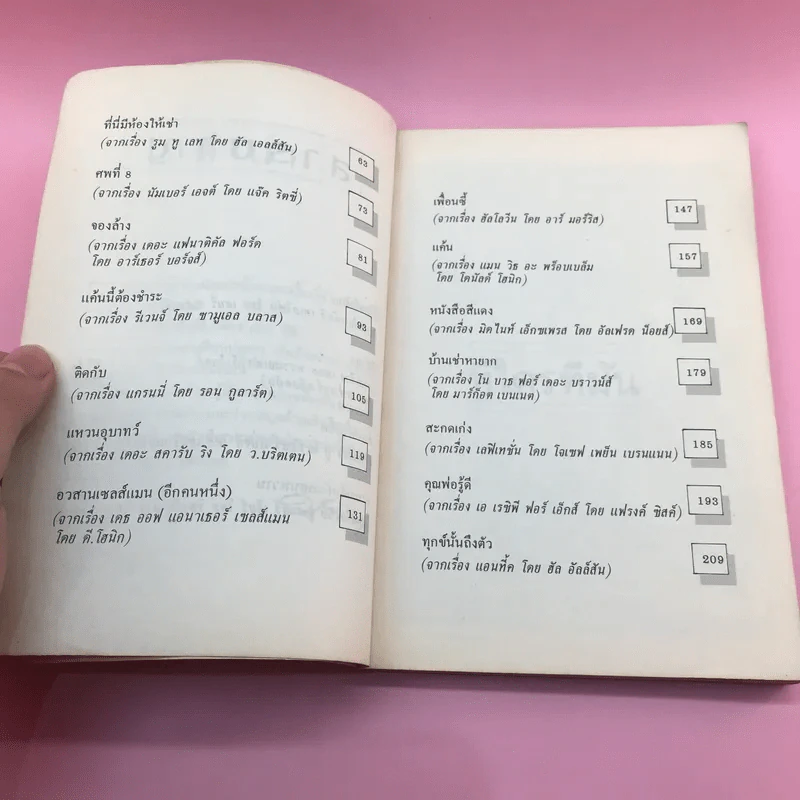 ที่นี่มีห้องให้เช่า
(จากเรื่อง รูม ทู เลท โดย ฮัล เอลล์สัน)
63
ศพที่ 8
(จากเรื่อง นัมเบอร์ เอจต์ โดย แจ๊ค ริตชี่)
73
จองล้าง
(จากเรื่อง เดอะ แฟนาติคัล ฟอร์ด
โดย อาร์เธอร์ บอร์จส์)
81
แค้นนี้ต้องชำระ
(จากเรื่อง รีเวนจ์ โดย ซามูเอล บลาส)
93
ติดกับ
(จากเรื่อง แกรนนี่ โดย รอน กูลาร์ต)
105
แหวนอุบาทว์
(จากเรื่อง เดอะ สคารับ ริง โดย ว.บริตเตน)
119
อวสานเซลส์แมน (อีกคนหนึ่ง)
(จากเรื่อง เดธ ออฟ แอนาเธอร์ เซลส์แมน
โดย ดี.โฮนิก)
131
เพื่อนซี้
(จากเรื่อง ฮัลโลวีน โดย อาร์ มอร์ริส)
147
แค้น
(จากเรื่อง แมน วิธ อะ พร็อบเบล็ม
โดย โดนัลด์ โฮนิก)
157
หนังสือสีแดง
(จากเรื่อง มิดไนท์ เอ็กซเพรส โดย อัลเฟรด น็อยส์)
169
บ้านเช่าหายาก
(จากเรื่อง โน บาธ ฟอร์ เดอะ บราวน์ส์
โดย มาร์ก็อต เบนเนต)
179
สะกดเก่ง
(จากเรื่อง เลฟิเทชั่น โดย โจเซฟ เพย็น เบรนแนน)
185
คุณพ่อรู้ดี
(จากเรื่อง เอ เรซิพี ฟอร์ เอ็กส์ โดย แฟรงค์ ซิสค์)
193
ทุกข์นั้นถึงตัว
(จากเรื่อง แอนที้ค โดย ฮัล อัลล์สัน)
209